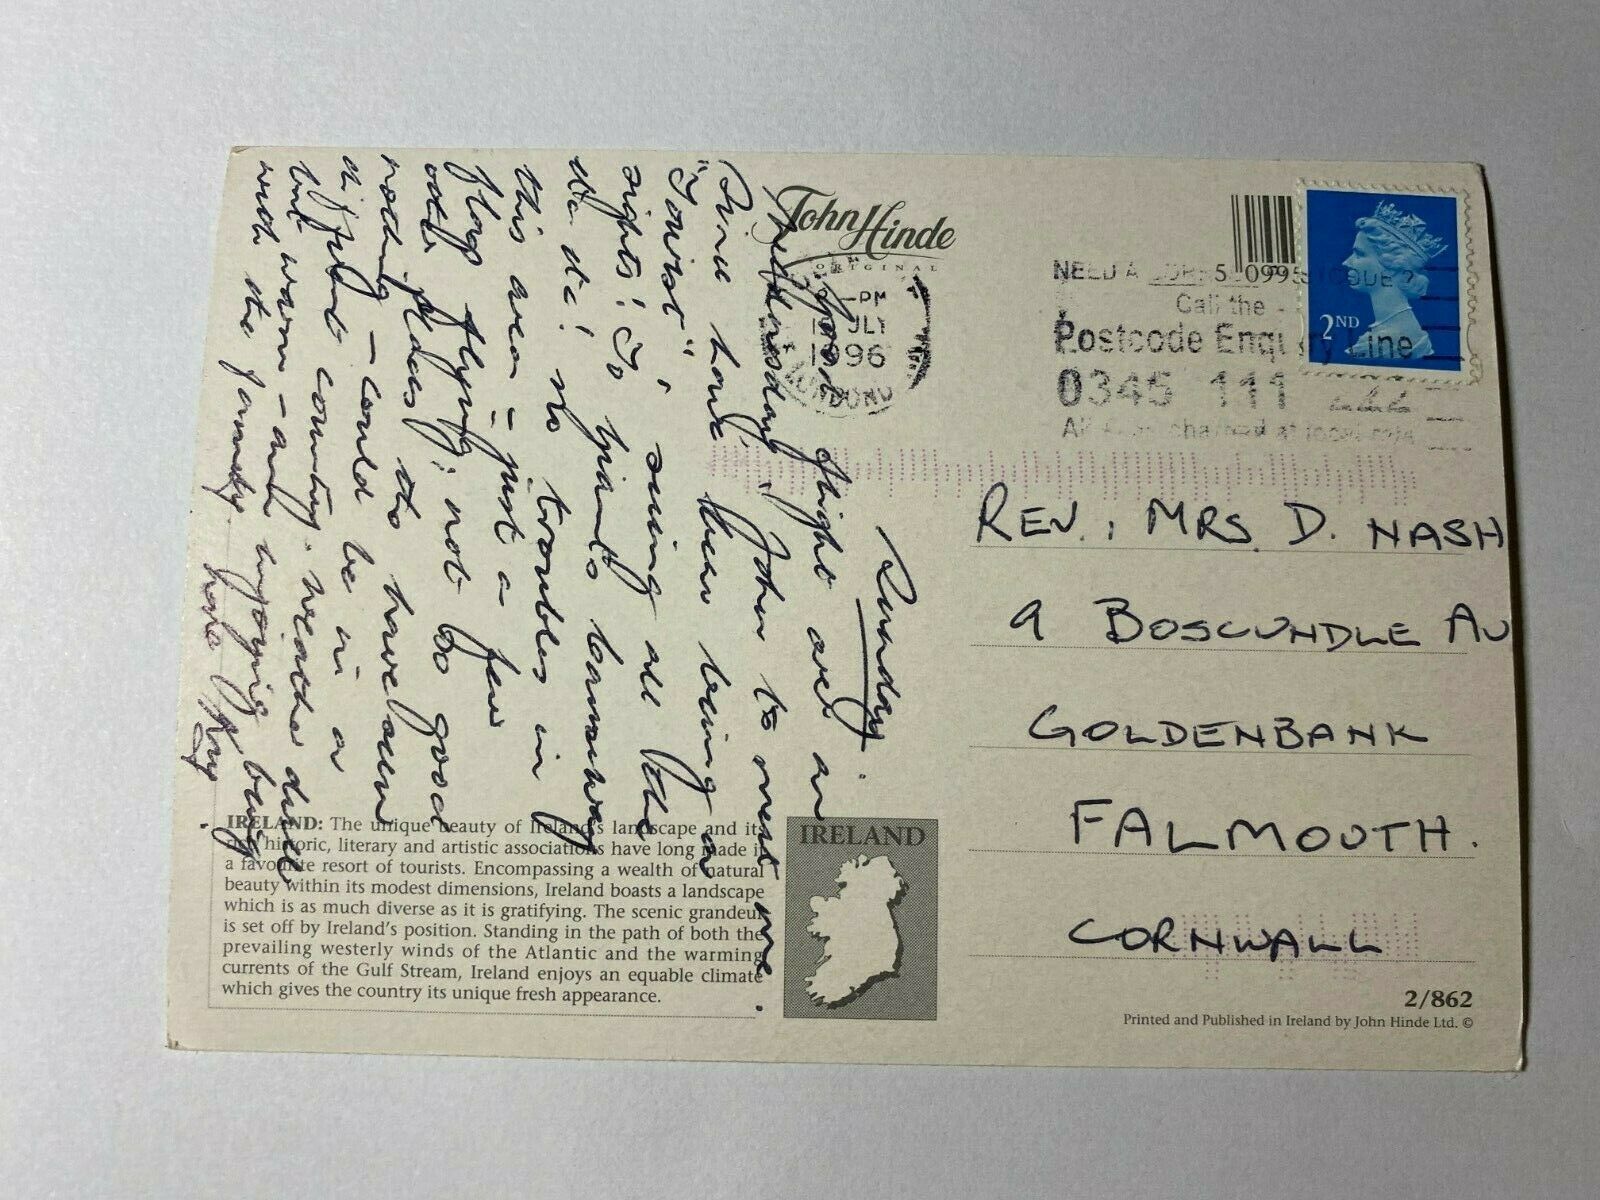 John Hinde
ORIGINAL
PM
JULY
1996
LONDON
5 099
NEED A
Call the
Postcode Enquiry Line
0345 111 222
charged at local rate
2ND
Sunday.
Good flight over on
Wednesday, John to meet me.
Since have been being a
"Tourist", seeing all the
sights! To Giants Causeway
etc etc! No troubles in
this area – just a few
flags flying; not so good
other places to have seen
nothing – could be in a
different country. Weather dull
but warm – and enjoying being
with the family here
REV. & MRS. D. NASH
9 BOSCUNDLE AV
GOLDENBANK
FALMOUTH.
CORNWALL
IRELAND: The unique beauty of Ireland's landscape and its
rich historic, literary and artistic associations have long made it
a favourite resort of tourists. Encompassing a wealth of natural
beauty within its modest dimensions, Ireland boasts a landscape
which is as much diverse as it is gratifying. The scenic grandeur
is set off by Ireland's position. Standing in the path of both the
prevailing westerly winds of the Atlantic and the warming
currents of the Gulf Stream, Ireland enjoys an equable climate
which gives the country its unique fresh appearance.
IRELAND
2/862
Printed and Published in Ireland by John Hinde Ltd. ©